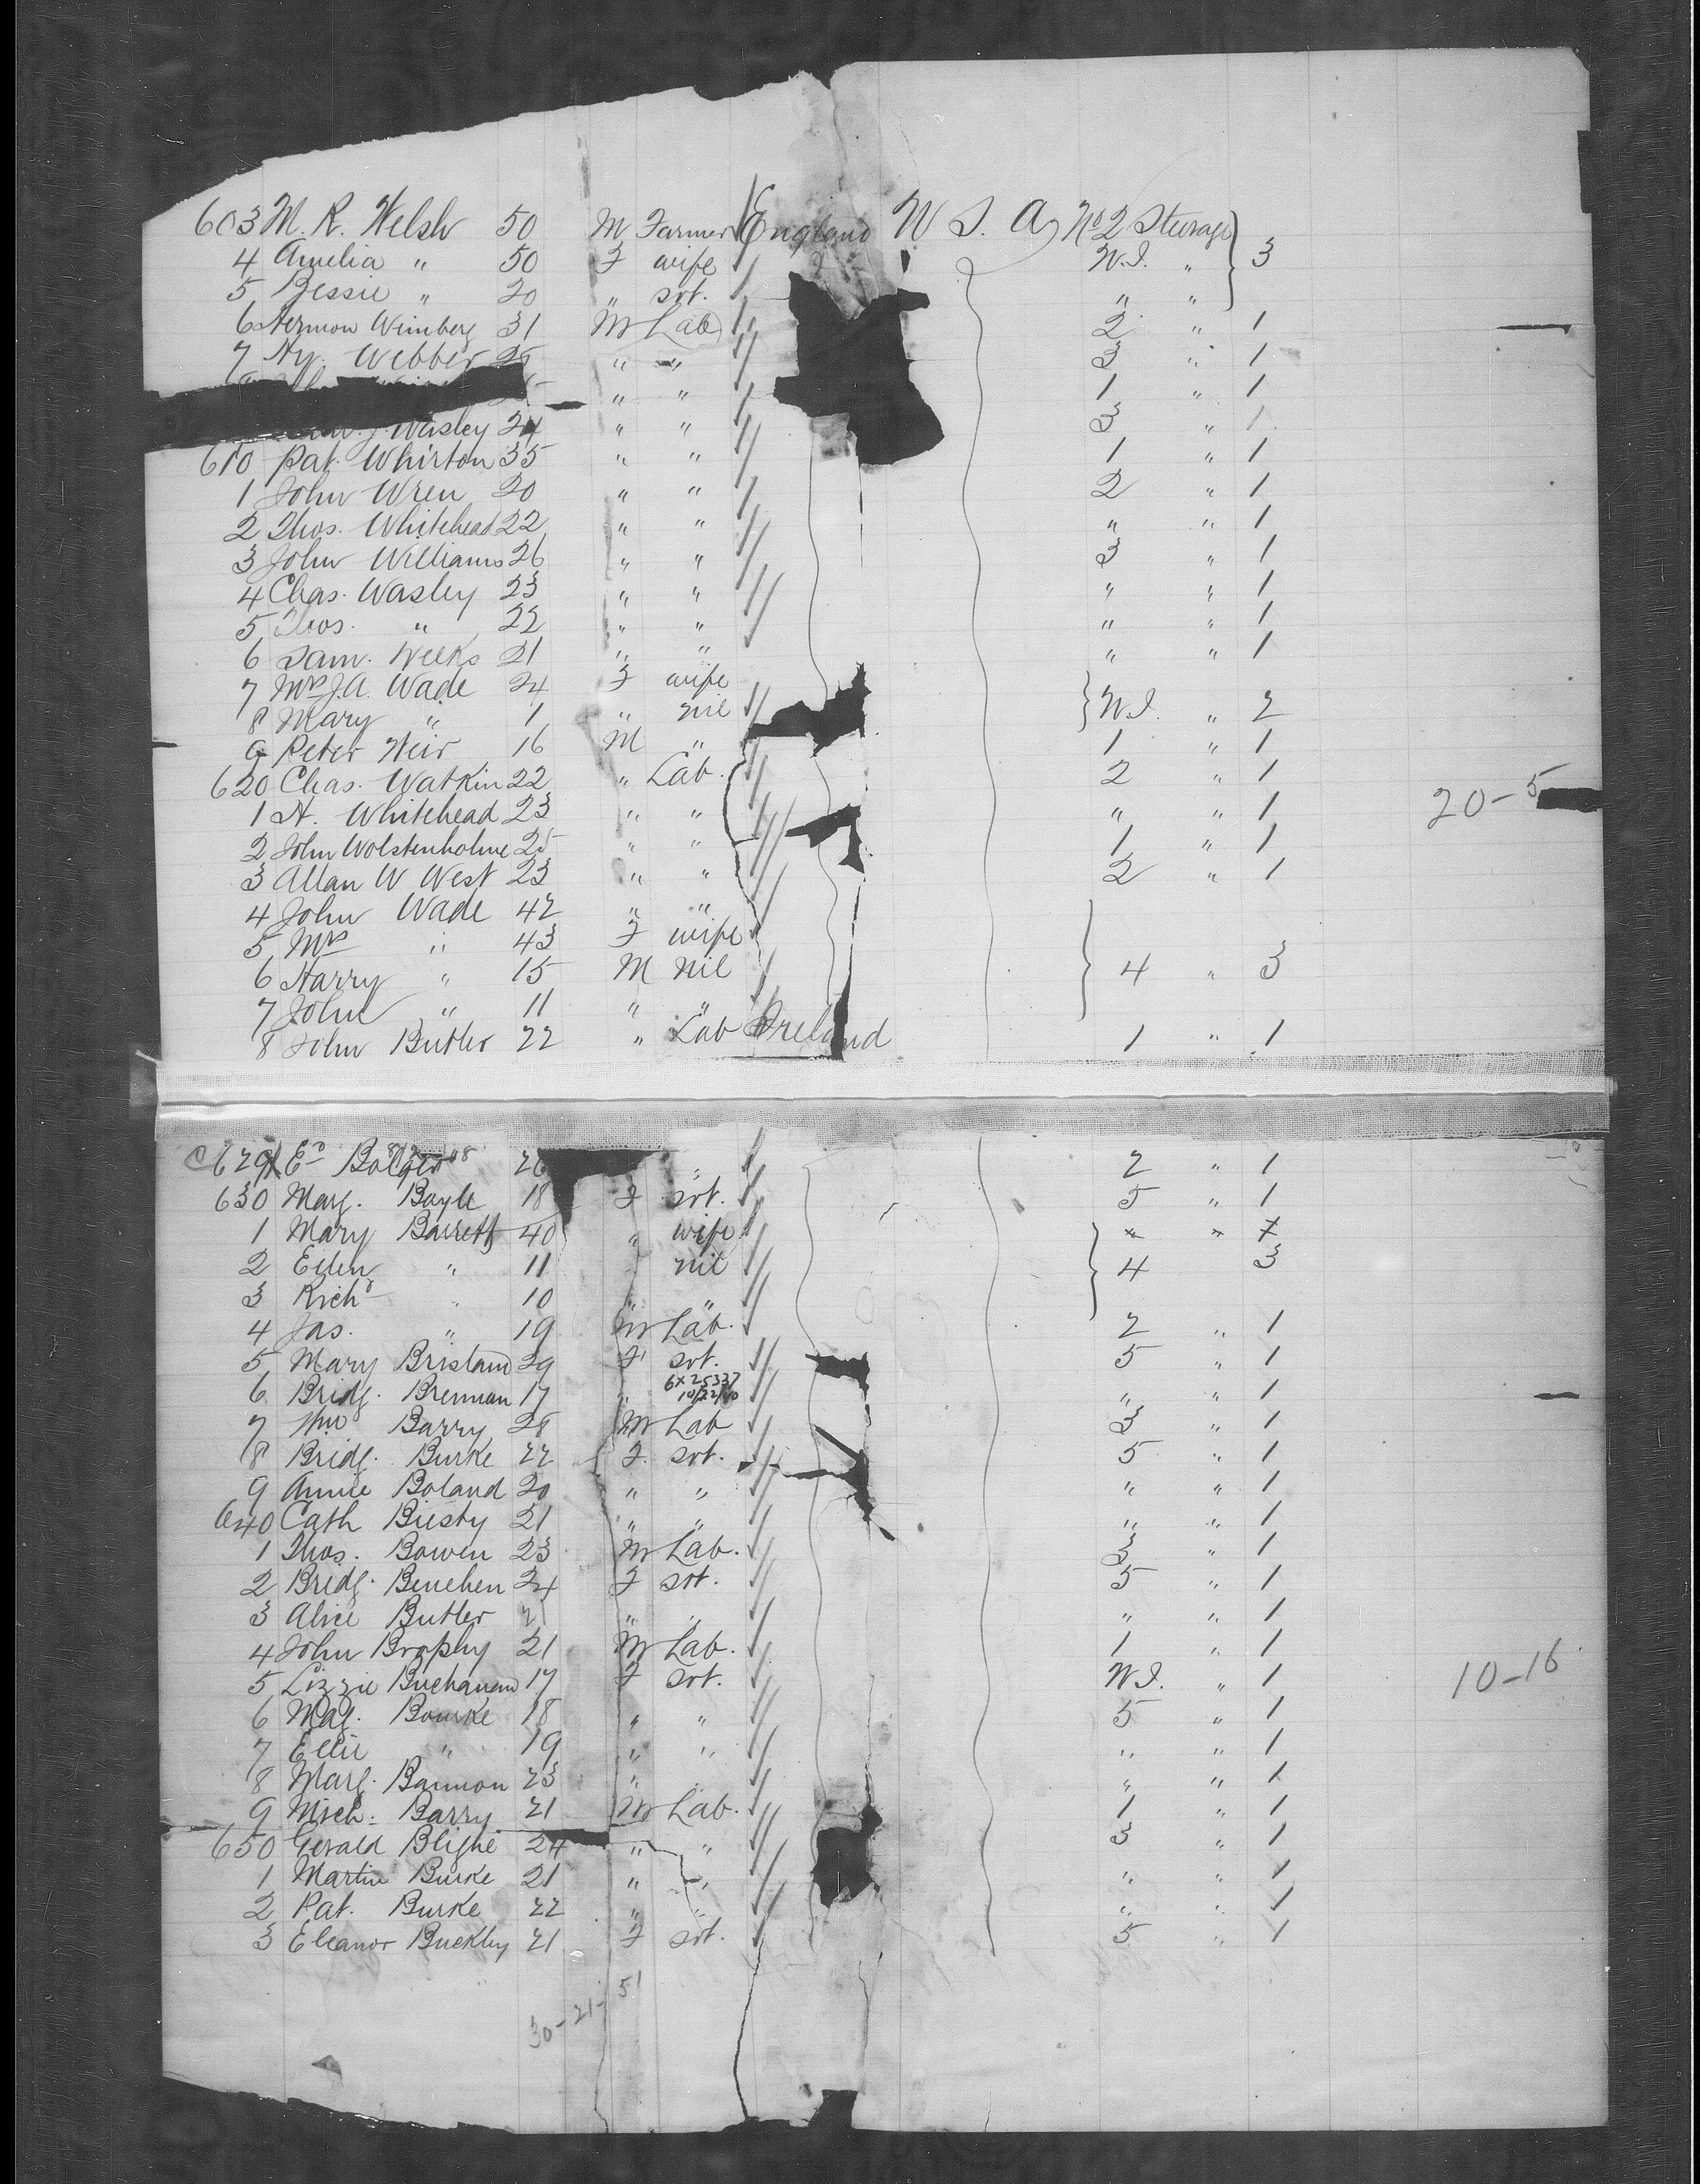 603 M. R. Welsh 50 M Farmer England U S. A No 2 Steerage
4 Amelia " 50 F wife W.I. " 3
5 Bessie " 20 " svt. " "
6 Hermon Weinberg 31 M Lab 2 " 1
7 Hy. Webber 28 " " 3 " 1
" " 1 " 1
J. Wasley 24 " " 3 " 1
610 Pat. Whirton 35 " " 1 " 1
1 John Wren 20 " " 2 " 1
2 Thos. Whitehead 22 " " " " 1
3 John Williams 26 " " 3 " 1
4 Chas. Wasley 23 " " " " 1
5 Thos. " 22 " " " " 1
6 Sam. Weeks 21 " " " " 1
7 Mrs J.A. Wade 24 F wife
8 Mary " 1 " nil W.I. " 2
9 Peter Weir 16 M " 1 " 1
620 Chas. Watkin 22 " Lab. 2 " 1
1 H. Whitehead 23 " " " " 1 20-5
2 John Wolstenholme 25 " " 1 " 1
3 Allan W West 23 " " 2 " 1
4 John Wade 42 " "
5 Mrs " 43 F wife
6 Harry " 15 M nil 4 " 3
7 John " 11 " "
8 John Butler 22 " Lab Ireland 1 " 1
C 629 Ed Bolger 26 " 2 " 1
630 Marg. Boyle 18 F svt. 5 " 1
1 Mary Barrett 40 " wife
2 Ellen " 11 nil 4 3
3 Richd " 10 " "
4 Jas. " 19 M Lab. 2 " 1
5 Mary Bristand 29 F svt. 5 " 1
6x25337
6 Bridg. Brennan 17 " 10/22/40 " " 1
7 Wm Barry 28 M Lab 3 " 1
8 Bridg. Burke 22 F. svt. 5 " 1
9 Annie Boland 20 " " " " 1
640 Cath Biesty 21 " " " " 1
1 Thos. Bowen 23 M Lab. 3 " 1
2 Bridg. Benehen 24 F svt. 5 " 1
3 Alice Butler 21 " " " " 1
4 John Brophy 21 M Lab. 1 " 1
5 Lizzie Buchanan 17 F svt. W.I. " 1 10-16
6 Mag. Bourke 18 " " 5 " 1
7 Ellie " 19 " " " " 1
8 Marg. Bannon 23 " " " " 1
9 Mich. Barry 21 M Lab. 1 " 1
650 Gerald Blighe 24 " " 3 " 1
1 Martin Burke 21 " " " " 1
2 Pat. Burke 22 " " " " 1
3 Eleanor Buckley 21 F svt. 5 " 1
30-21-51